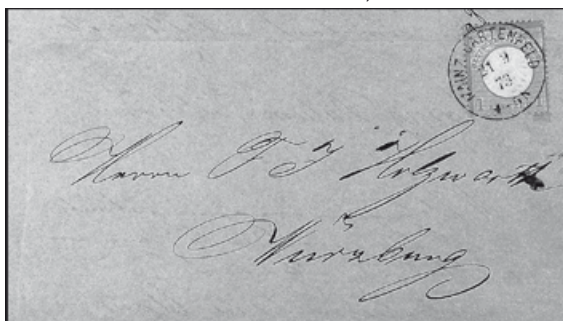 MAINZ GARTENFELD
21 9
73
Herrn F J Holzwarth
Würzburg